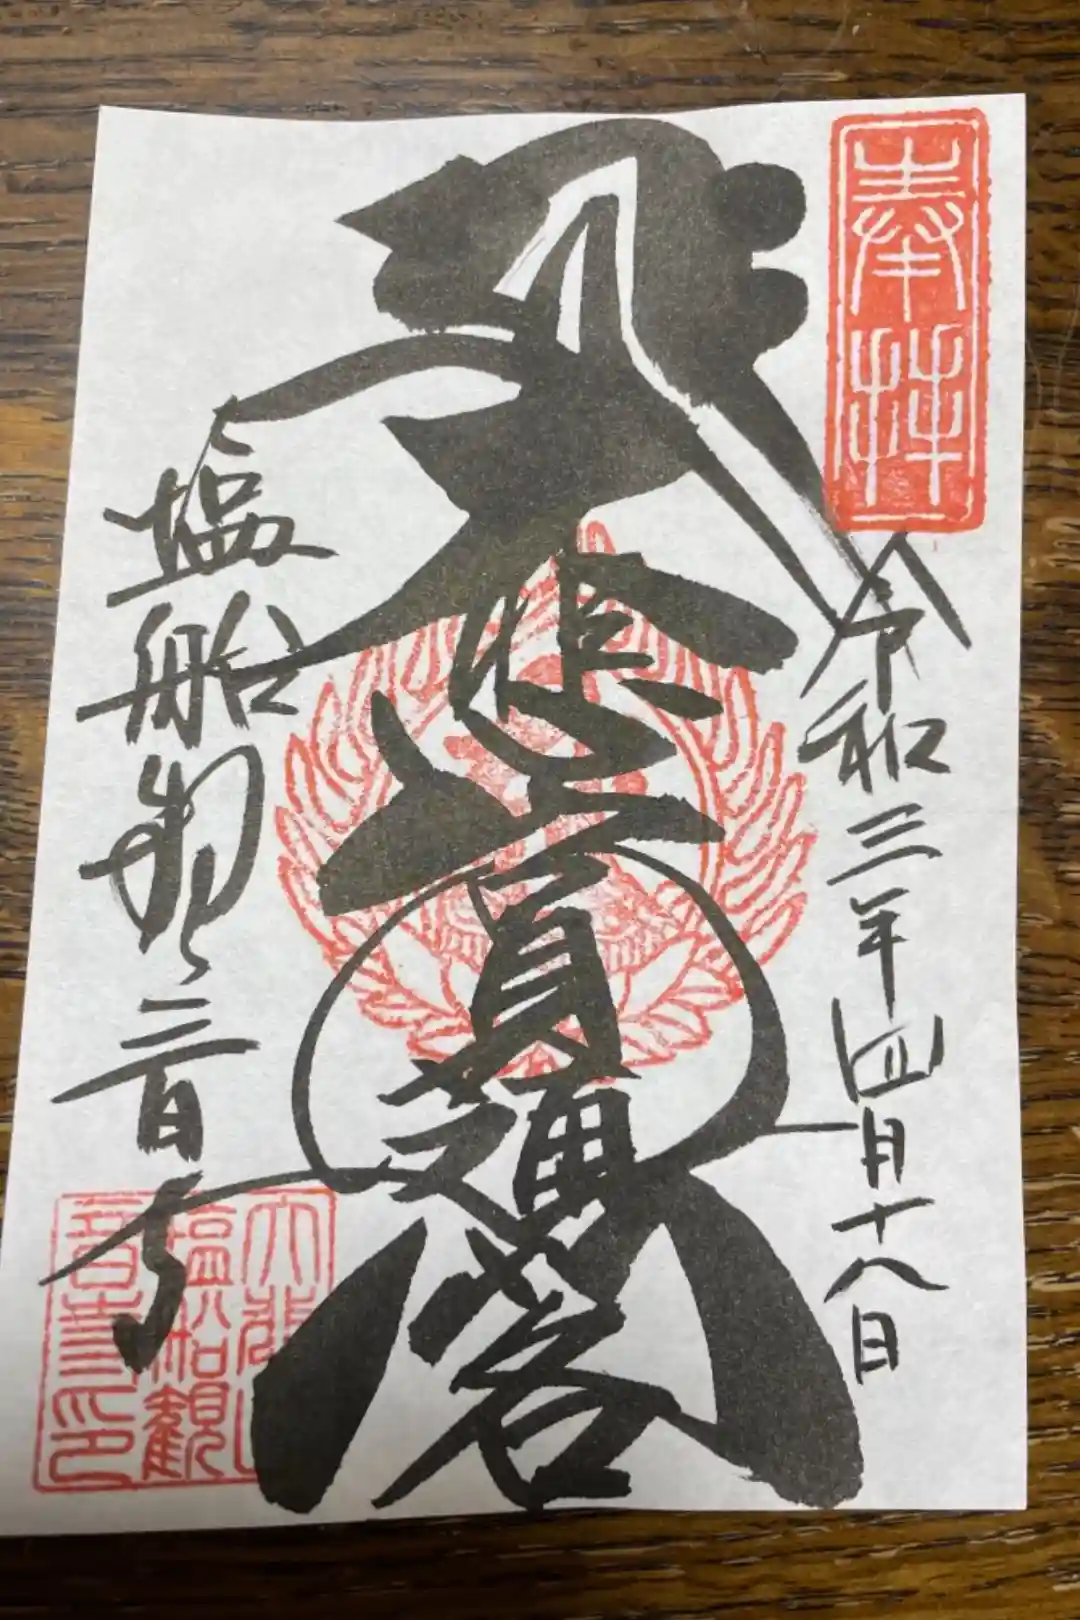 奉拝
令和三年四月十八日
大悲
塩船観音寺
大悲山
塩船観
音寺印